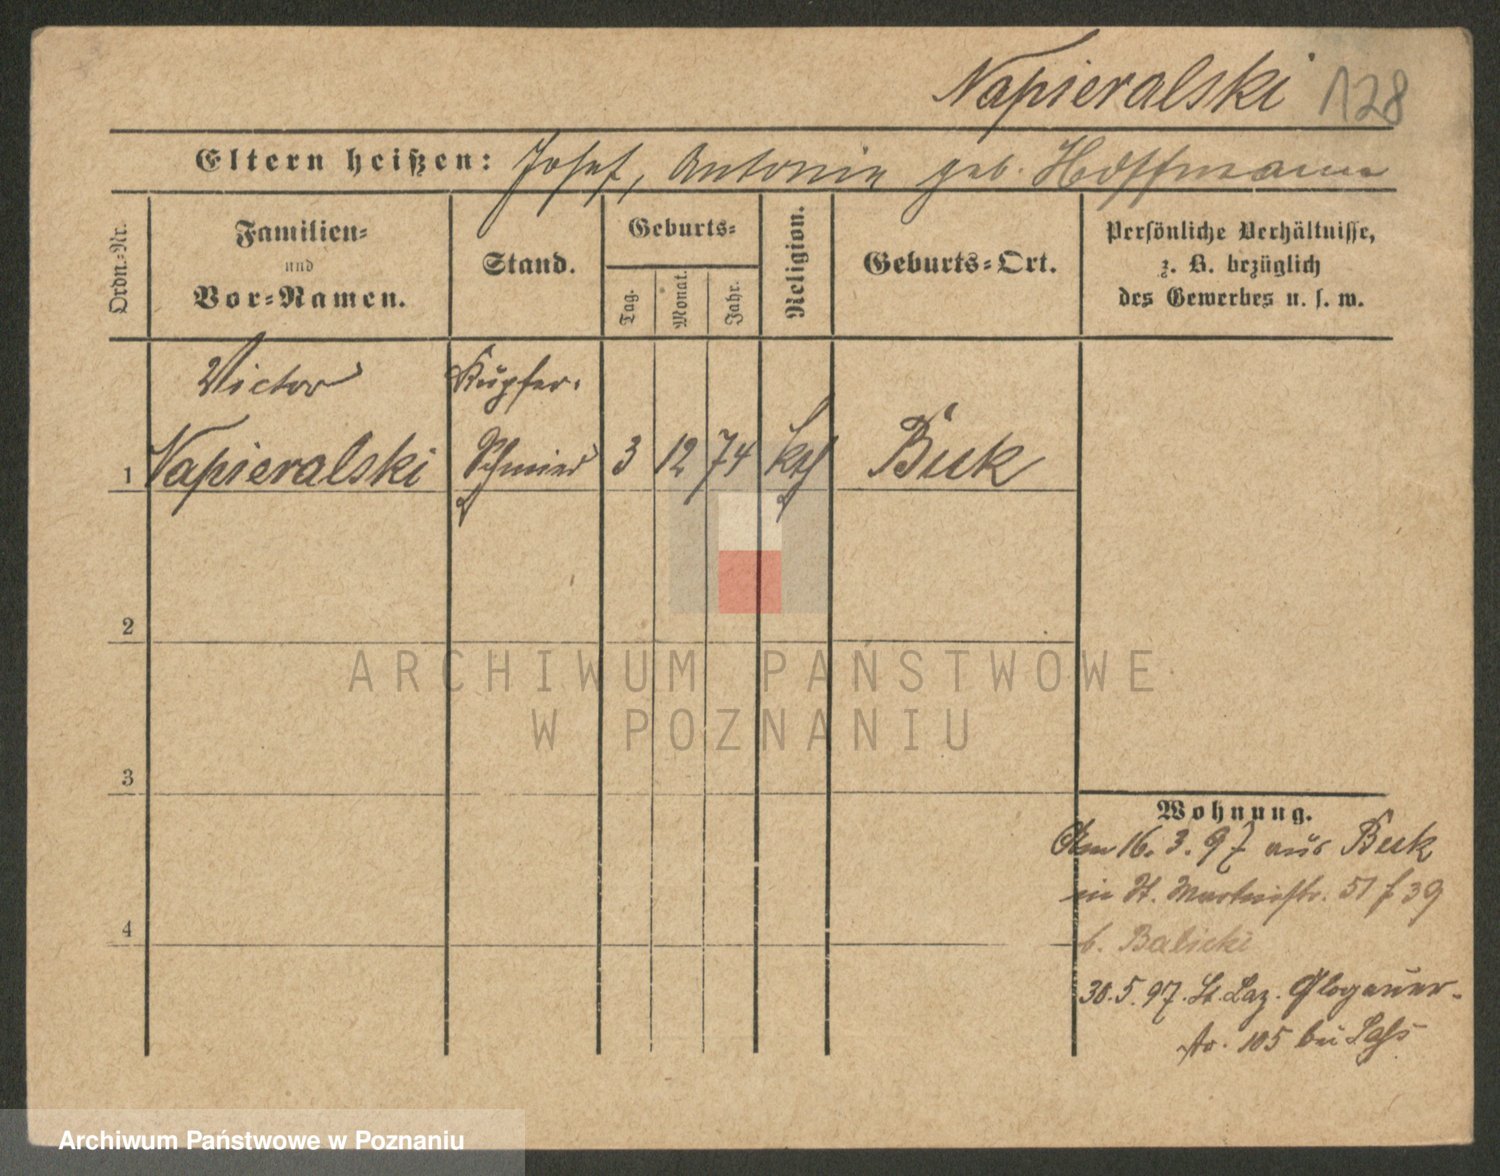 Napieralski 128
Eltern heißen: Josef, Antonie geb. Hoffmann
Ordn.-Nr.
Familien-
und
Vor-Namen.
Stand.
Geburts-
Tag.
Monat.
Jahr.
Religion.
Geburts-Ort.
Persönliche Verhältnisse,
z. B. bezüglich
des Gewerbes u. s. w.
Victor Kupfer-
1 Napieralski Schmied 3 12 74 kth Buk
2
3
4
Wohnung.
Am 16. 3. 97 aus Buk
in St. Martinstr. 51 f 39
b. Balicki
30. 5. 97. St. Laz. Glogauer-
str. 105 bei
ARCHIWUM PAŃSTWOWE
W POZNANIU
Archiwum Państwowe w Poznaniu